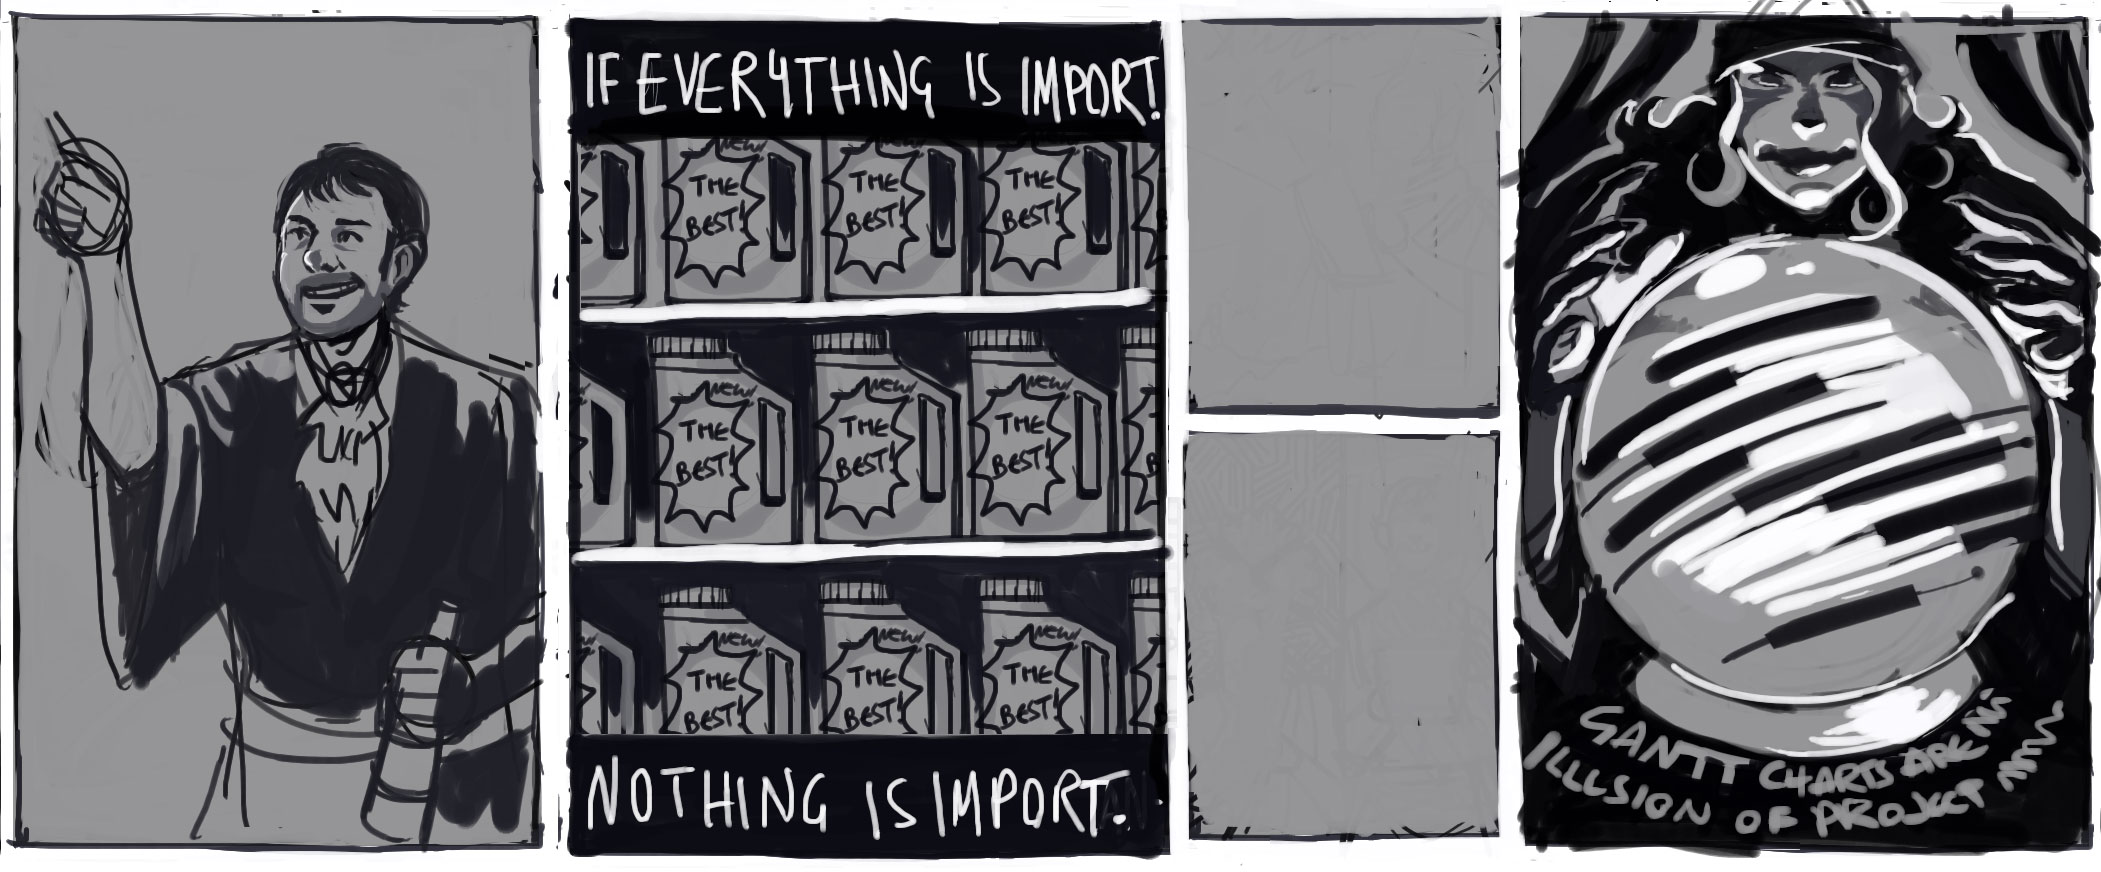 IF EVERYTHING IS IMPORT.
NEW
THE
BEST!
NEW
THE
BEST!
NEW
THE
BEST!
NEW
THE
BEST!
NEW
THE
BEST!
NEW
THE
BEST!
NEW
THE
BEST!
NEW
THE
BEST!
NEW
THE
BEST!
NOTHING IS IMPORT.
GANTT CHARTS ARE
ILLUSION OF PROJECT